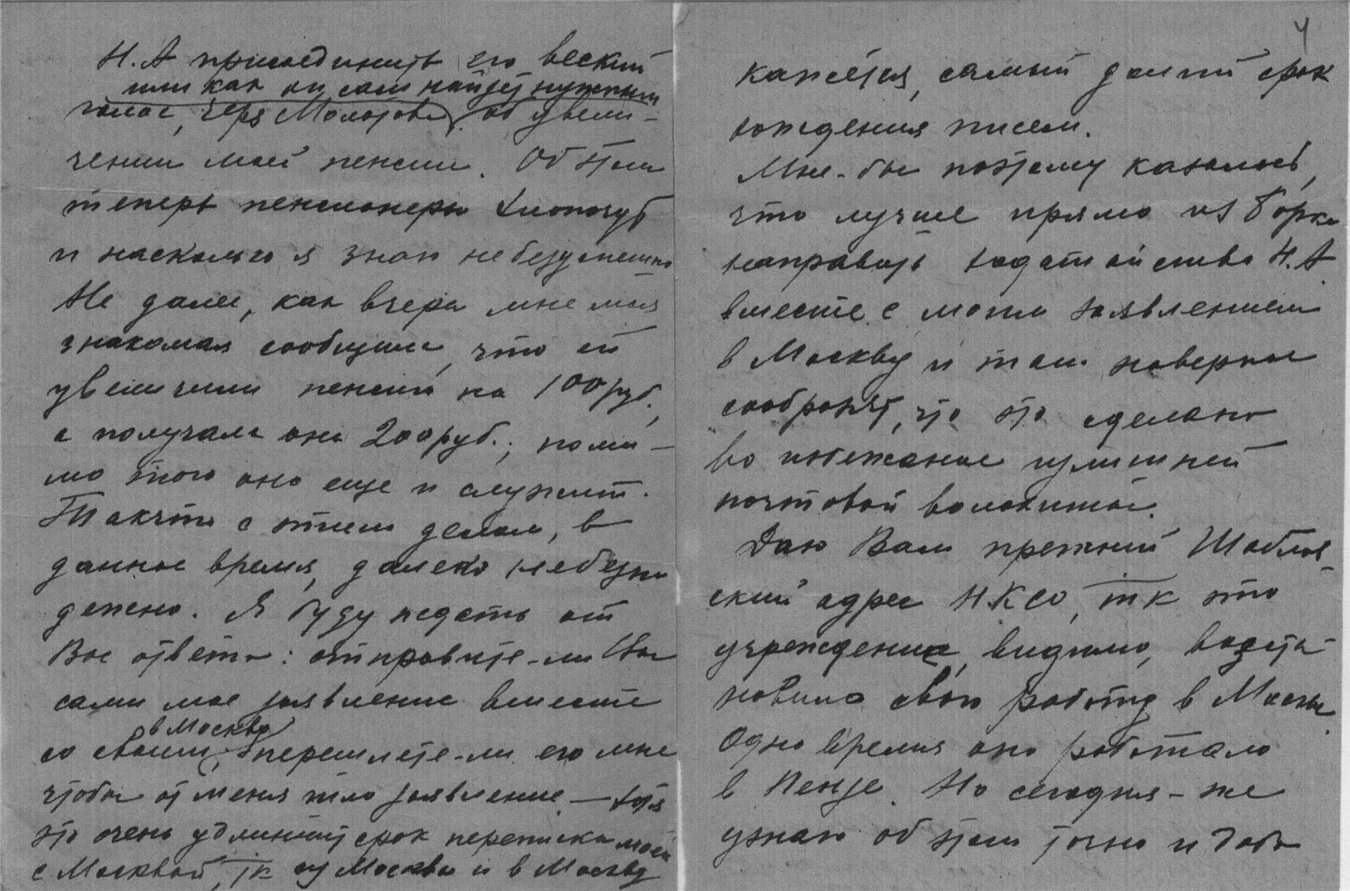 Н.А присоединить его веский
или как он сам найдет нужным
голос, через Молотова, об увели-
чении моей пенсии. Об этом
теперь пенсионеры хлопочут
и насколько я знаю небезуспешно
Не далее, как вчера мне моя
знакомая сообщила, что ей
увеличили пенсию на 100 руб.,
а получала она 200 руб.; поми-
мо этого она еще и служит.
Так что с этим делом, в
данное время, далеко небезна
дежно. Я буду ждать от
Вас ответа: отправите-ли Вы
сами мое заявление вместе
в Москву
со своим, перешлете-ли его мне
чтобы от меня шло заявление — хотя
это очень удлинит срок переписки моей
с Москвой, т к из Москвы и в Москву
4
кажется, самый долгий срок
хождения писем.
Мне-бы поэтому казалось,
что лучше прямо из Борка
направить ходатайство Н.А
вместе с моим заявлением
в Москву и там наверное
сообразят, что это сделано
во избежание излишней
почтовой волокиты.
Даю Вам прежний Шаблов-
ский адрес НКСО, т к это
учреждение, видимо, восста-
новило свою работу в Москве.
Одно время оно работало
в Пензе. Но сегодня-же
узнаю об этом точно и